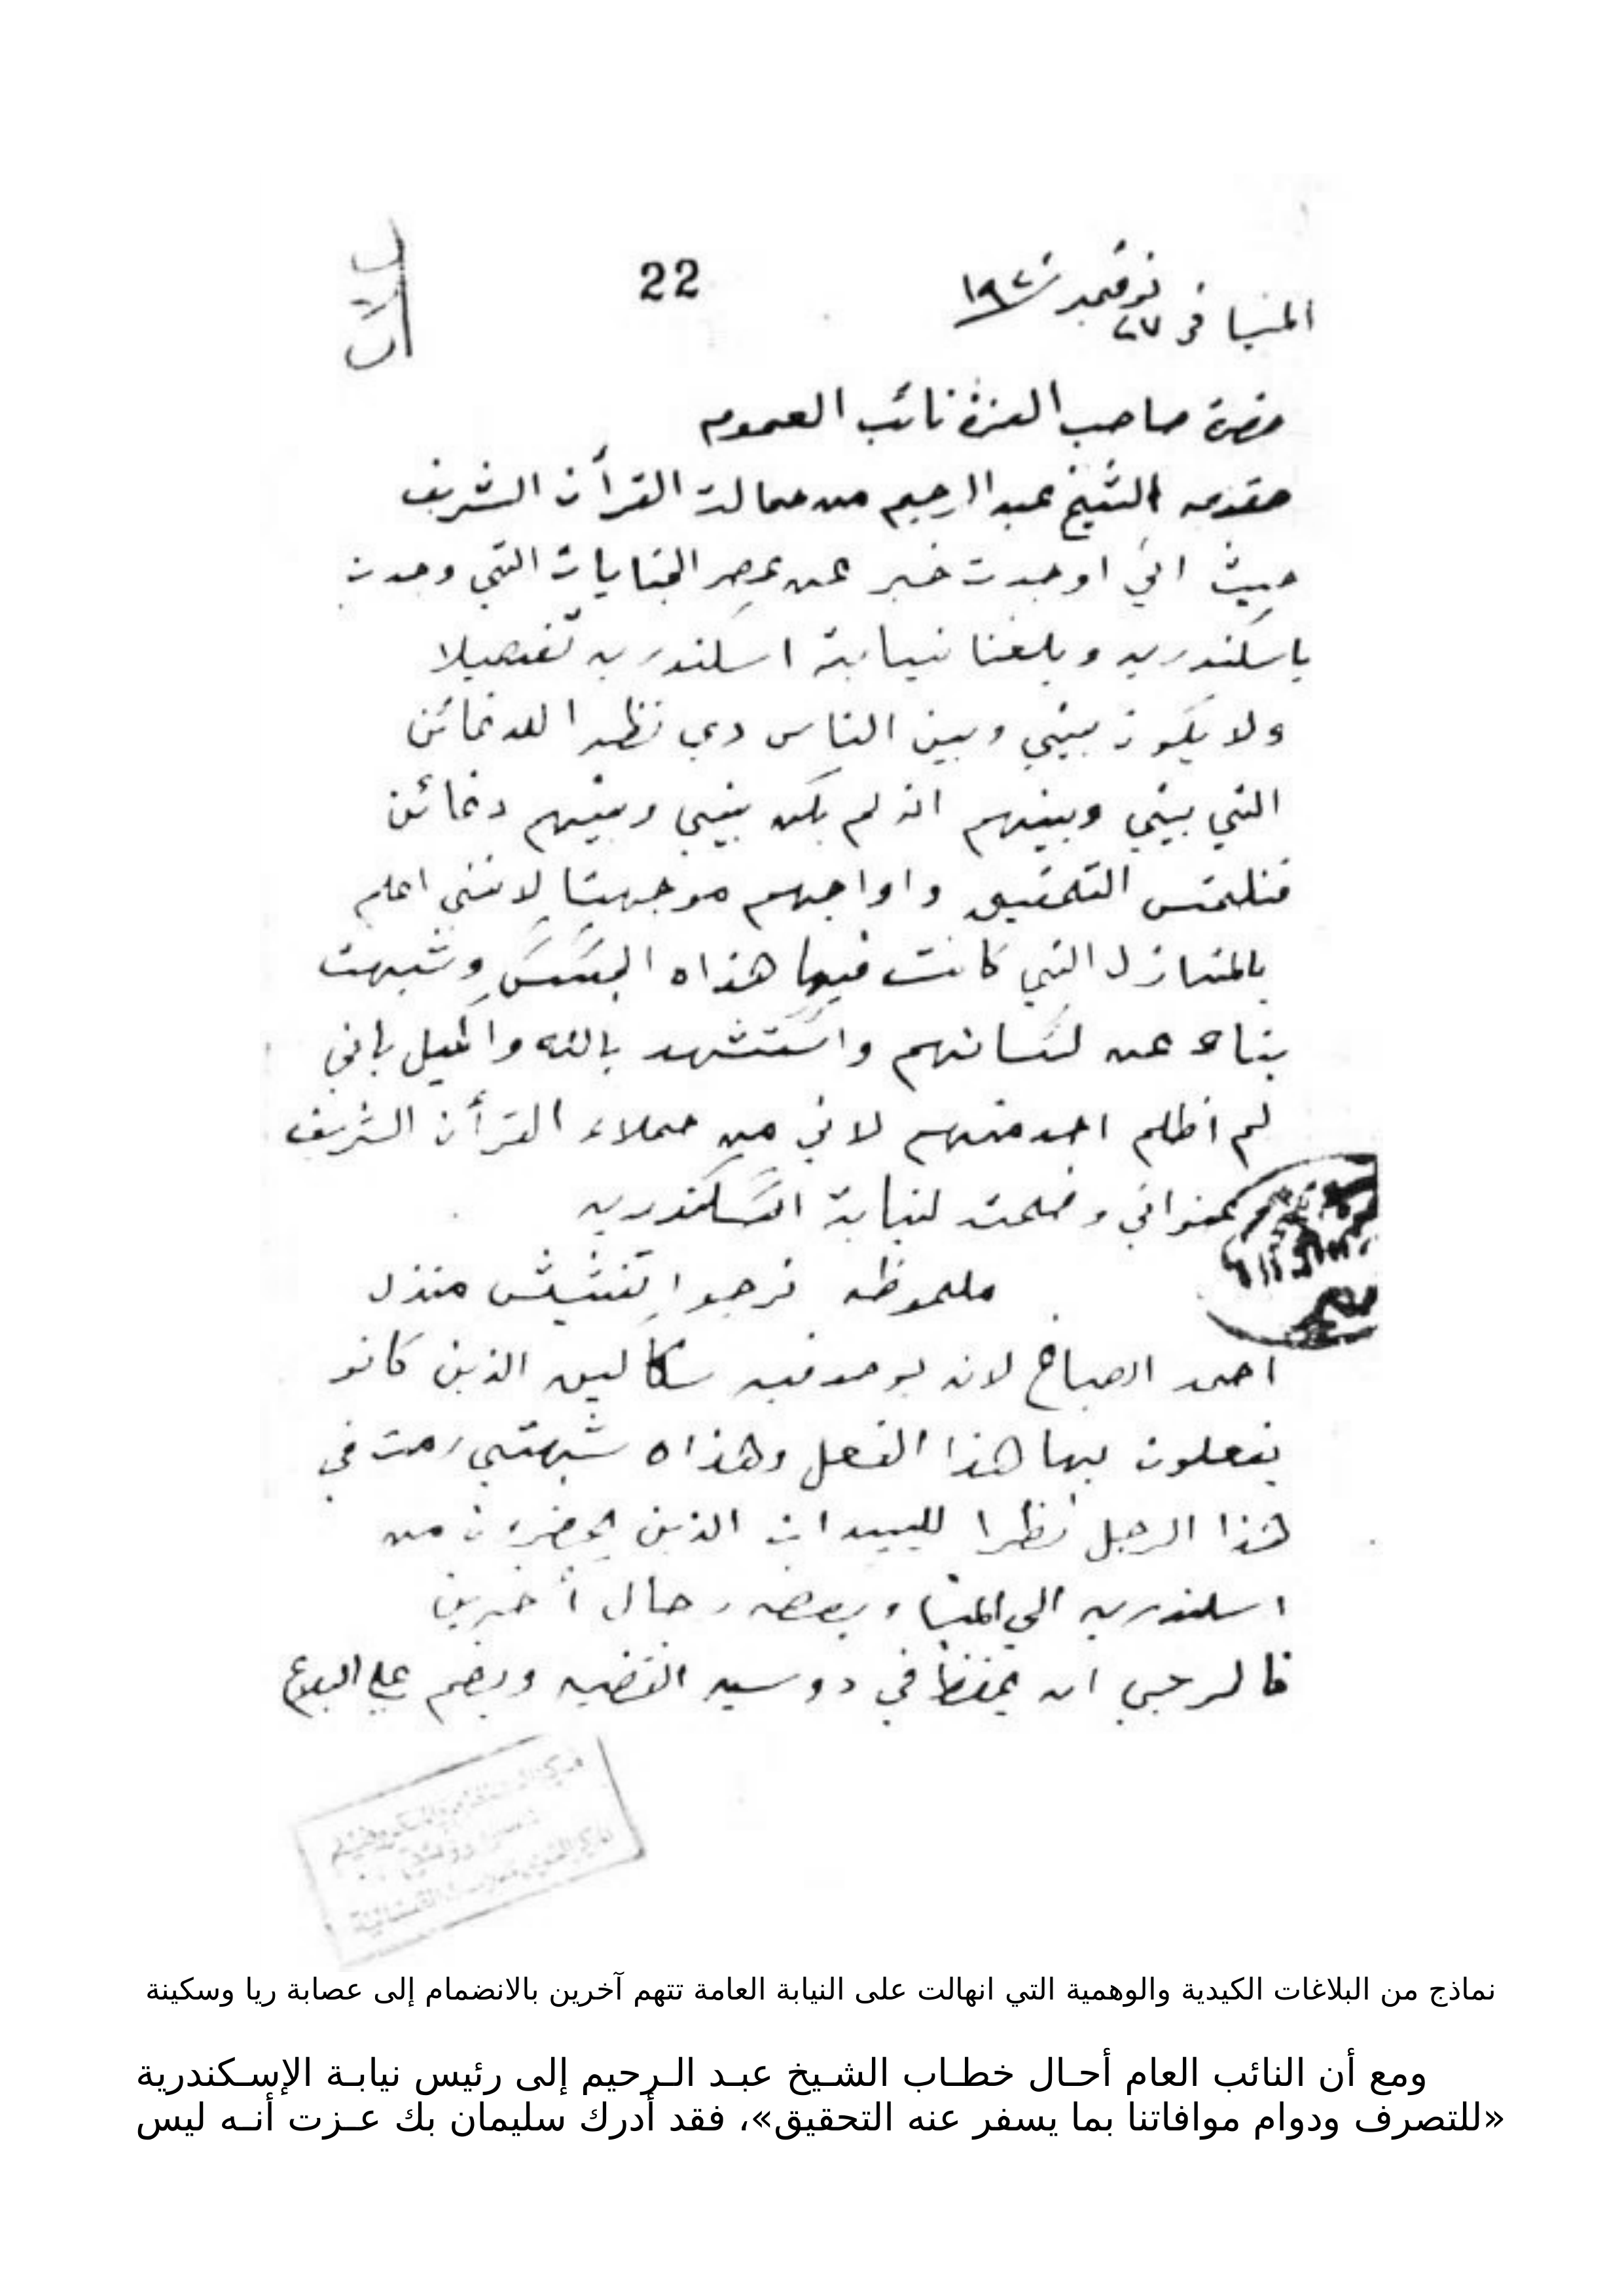 المنيا في ٢٧ نوفمبر سنة ١٩٢٠
22
حضرة صاحب العزة نائب العموم
مقدمه الشيخ عبد الرحيم من حمالت القرأن الشريف
حيث اني اوجدت خبر عن الجنايات التي وجدت
باسكندريه وبلغنا نيابة اسكندريه تفصيلا
ولا يكون بيني وبين الناس دي نظرا للدغائن
التي بيني وبينهم انه لم يكن بيني وبينهم دغائن
فنلتمس التحقيق واواجههم موجهيتا لانني اعلم
بالمنازل التي كانت فيها هذاه الجسس وشبهت
بناء عن لسانهم واستشهد بالله واكيل باني
لم اظلم احد منهم لاني من حملاء القرأن الشريف
عنواني وضحت لنيابة السكندريه
ملحوظه نرجوا تفتيش منزل
احمد الصباح لانه يوجد فيه سكاكين الذين كانو
يفعلون بها هذا الفعل وهذاه شبهتي رمت في
هذا الرجل نظرا للسيدات الذين يحضرون من
اسكندريه الي المنيا وبعضه رجال أخرين
فالرجى ان يحفظ في دوسيه القضيه ويضم علي البلاغ
نماذج من البلاغات الكيدية والوهمية التي انهالت على النيابة العامة تتهم آخرين بالانضمام إلى عصابة ريا وسكينة
ومع أن النائب العام أحال خطاب الشيخ عبد الرحيم إلى رئيس نيابة الإسكندرية
«للتصرف ودوام موافاتنا بما يسفر عنه التحقيق»، فقد أدرك سليمان بك عزت أنه ليس